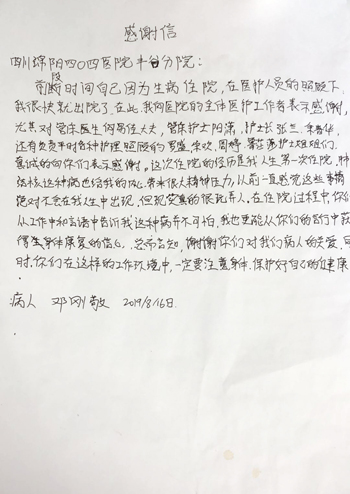 感谢信
四川绵阳四0四医院丰谷分院:
前段时间自己因为生病住院,在医护人员的照顾下,
我很快就出院了.在此,我向医院的全体医护工作者表示感谢,
尤其对管床医生何易任大夫,管床护士阳潇,护士长张兰
还有负责平时各种护理照顾的护士姐姐们,
真诚的向你们表示感谢。这次住院的经历是我人生第一次住院,肺
结核这种病也给我的心带来很大精神压力,以前一直感觉这些事情
绝对不会在我人生中出现,但现实真的很玩弄人.在住院过程中,你们
从工作中和言语中告诉我这种病并不可怕,我也更能从你们的言行中获
得身体康复的信心.谢谢你们对我们病人的关爱,同
时,你们在这样的工作环境中,一定要注意身体,保护好自己的健康.
病人 邓刚敬 2019/8/16日.